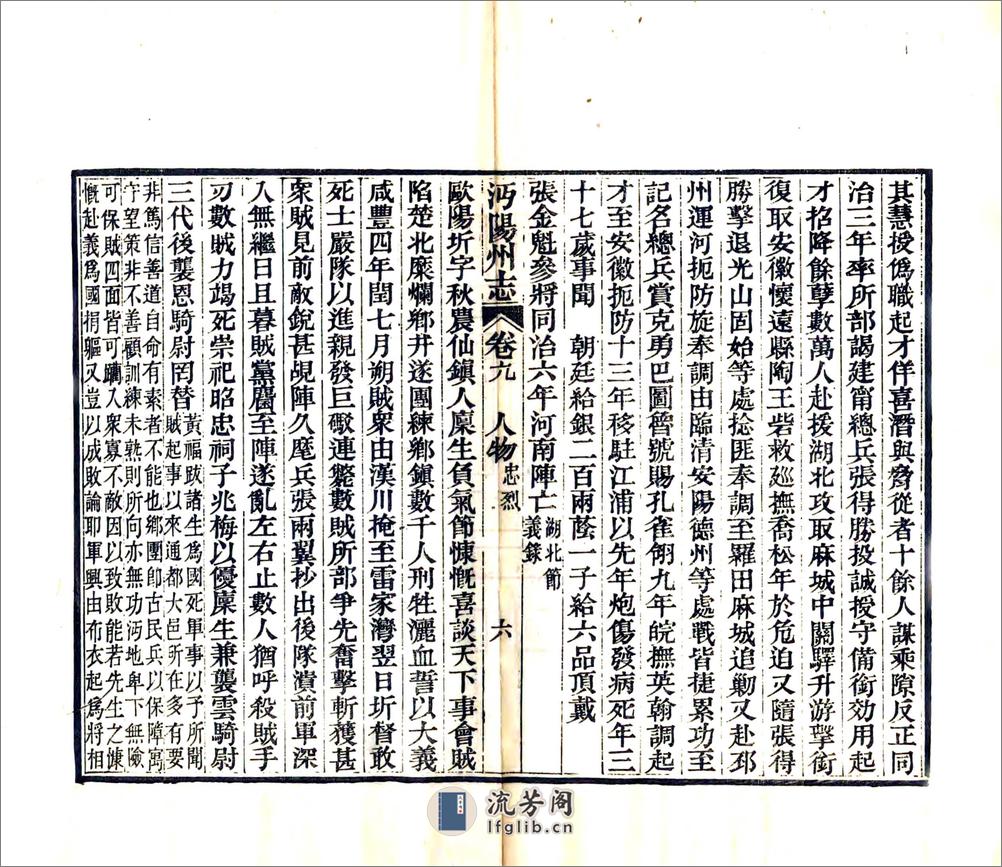 其慧授僞職起才佯喜潛與脅從者十餘人謀乘隙反正同
治三年率所部謁建甯總兵張得勝投誠授守備銜効用起
才招降餘孽數萬人赴援湖北攻取麻城中關驛升游擊銜
復取安徽懷遠縣陶王砦救廵撫喬松年於危迫又隨張得
勝擊退光山固始等處捻匪奉調至羅田麻城追勦又赴邳
州運河扼防旋奉調由臨清安陽德州等處戰皆捷累功至
記名總兵賞克勇巴圖魯號賜孔雀翎九年皖撫英翰調起
才至安徽扼防十三年移駐江浦以先年炮傷發病死年三
十七歲事聞　朝廷給銀二百兩蔭一子給六品頂戴
張金魁參將同治六年河南陣亡湖北節
義錄
沔陽州志　卷九　人物忠烈　六
歐陽圻字秋農仙鎮人廩生負氣節慷慨喜談天下事會賊
陷楚北糜爛鄉井遂團練鄉鎮數千人刑牲灑血誓以大義
咸豐四年閏七月朔賊衆由漢川掩至雷家灣翌日圻督敢
死士嚴隊以進親發巨礮連斃數賊所部爭先奮擊斬獲甚
衆賊見前敵銳甚覘陣久麾兵張兩翼抄出後隊潰前軍深
入無繼日且暮賊黨麕至陣遂亂左右止數人猶呼殺賊手
刃數賊力竭死崇祀昭忠祠子兆梅以優廩生兼襲雲騎尉
三代後襲恩騎尉罔替黃福跋諸生爲國死軍事以予所聞
賊起事以來通都大邑所在多有要
非篤信善道自命有素者不能也鄉團卽古民兵以保障寓
守望策非不善顧訓練未熟則所向亦無功沔地卑下無險
可保賊四面皆可躪入衆寡不敵因以致敗能若先生之慷
慨赴義爲國捐軀又豈以成敗論耶軍興由布衣起爲將相
流芳阁
lfglib.cn